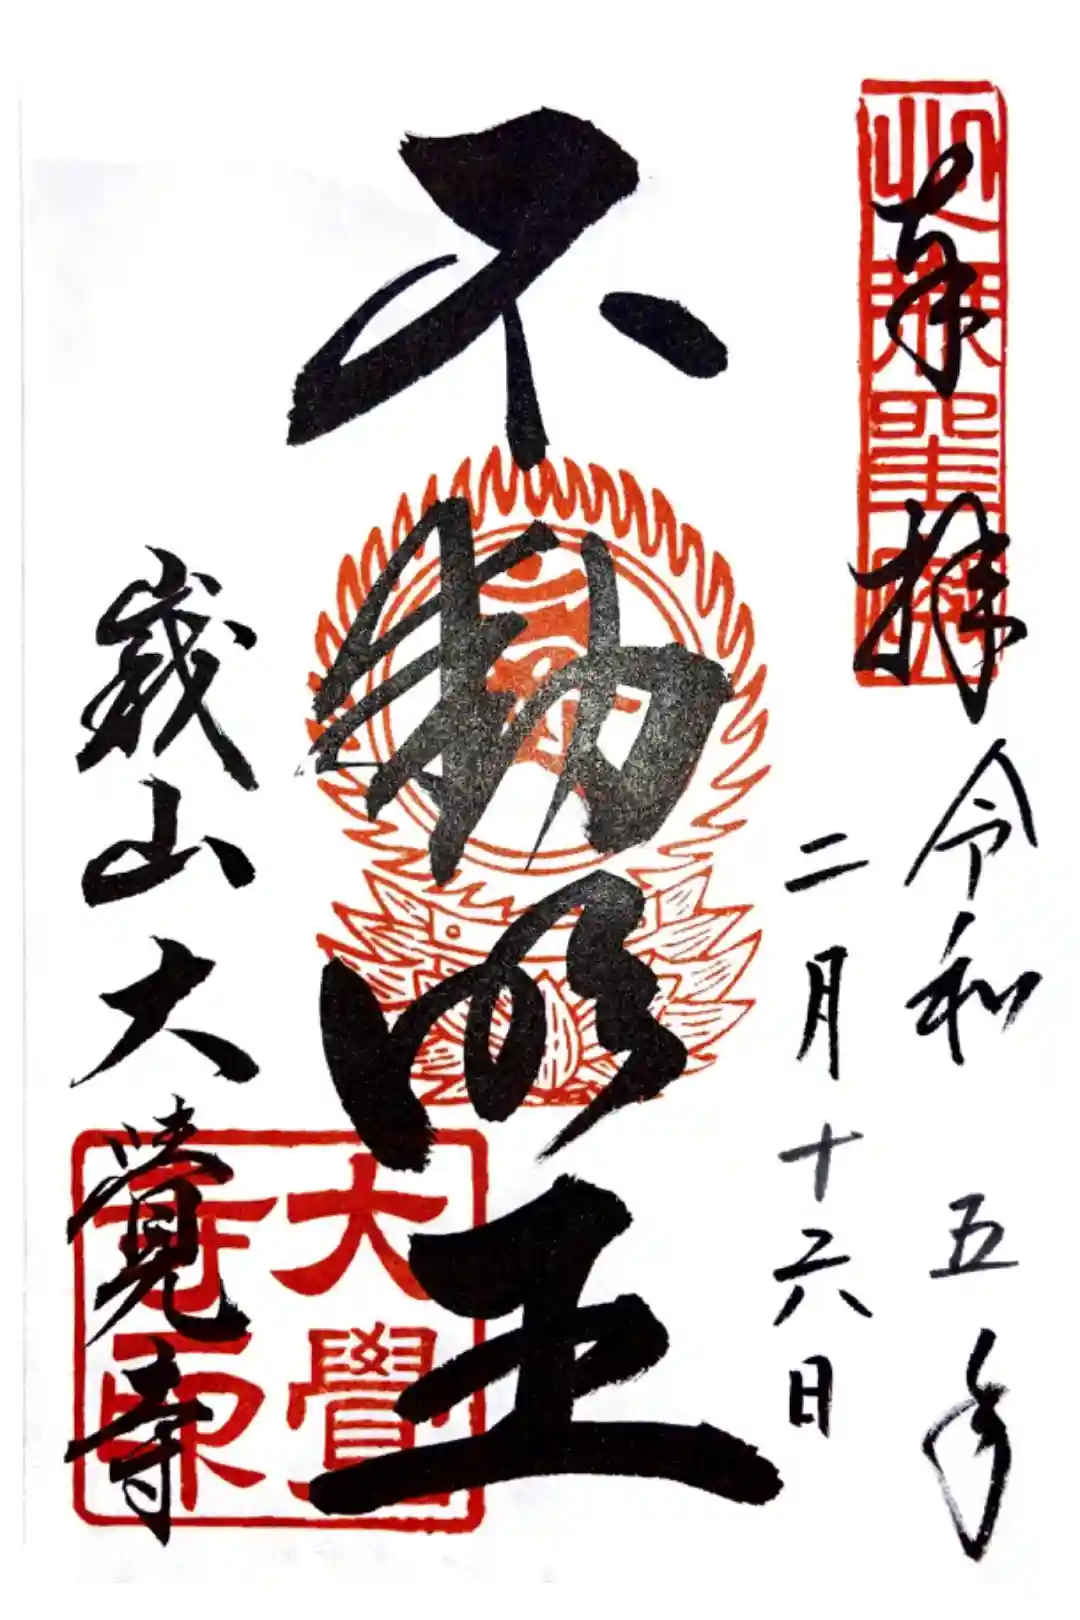 奉拝
令和五年
二月十六日
不動明王
山大覚寺
大覺
寺印